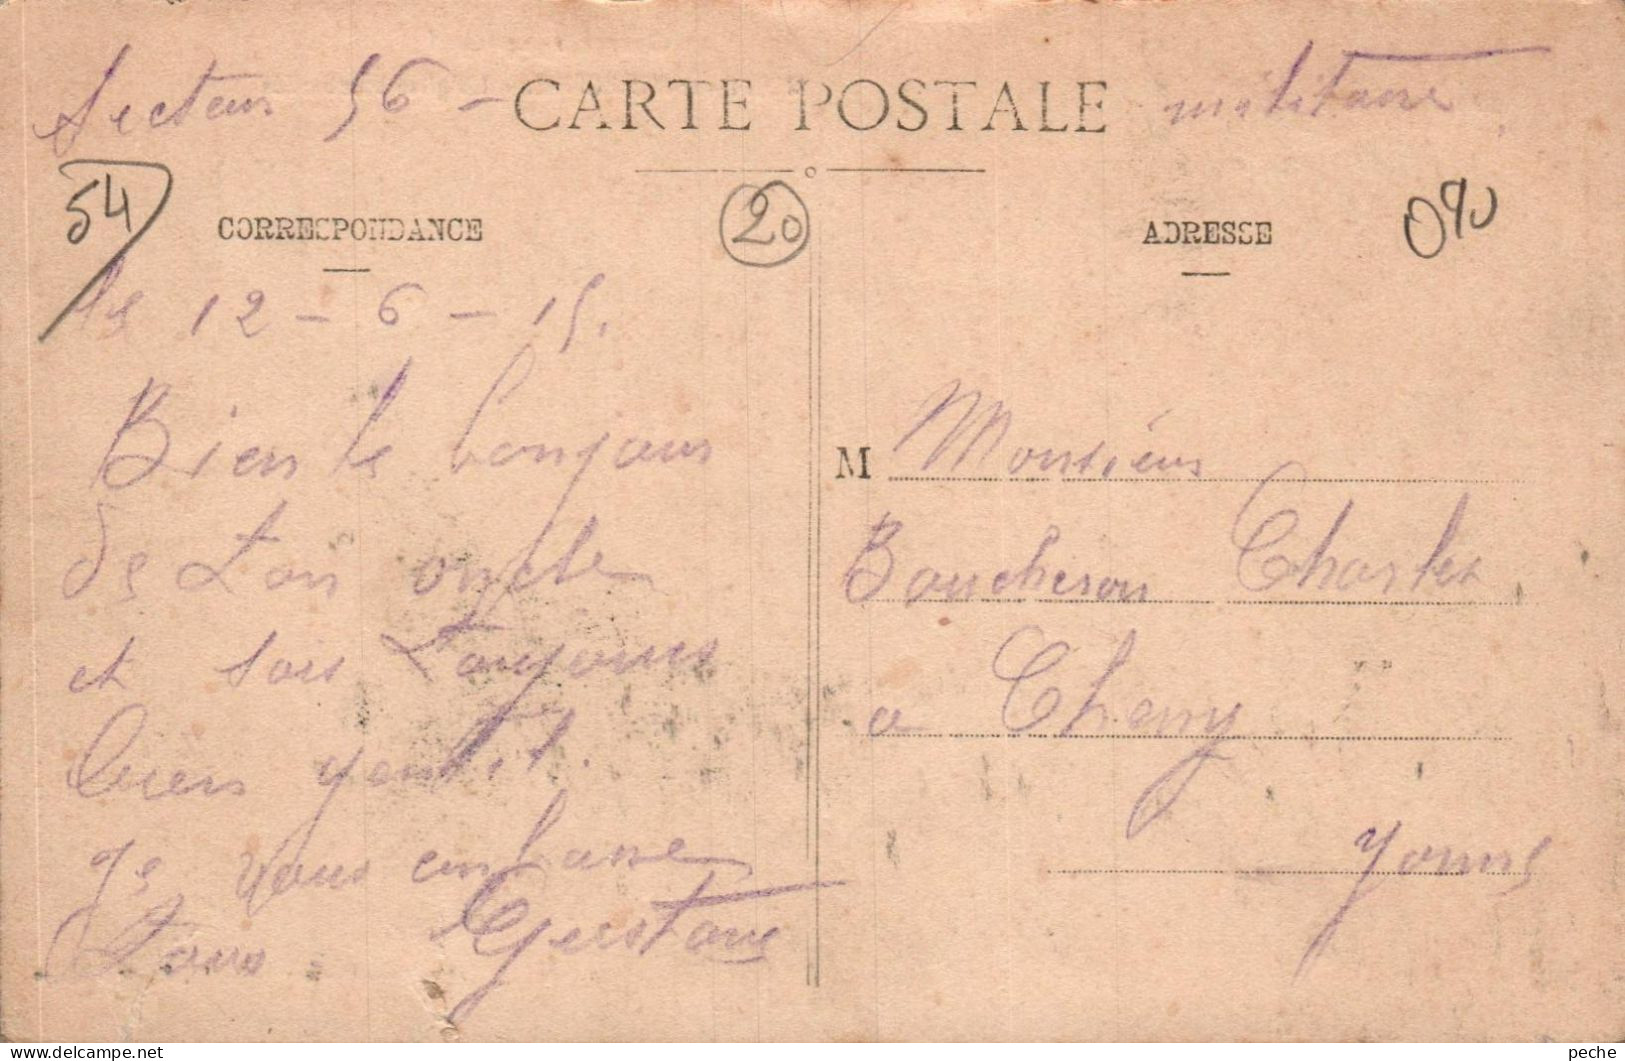 Secteur 56 - CARTE POSTALE militaire
54
CORRESPONDANCE
20
ADRESSE
le 12 - 6 - 15.
Bien le bonjour
de ton oncle
et sois toujours
bien gentil.
Je vous embrasse
Tous. Gustave
M Monsieur
Boucheron Charles
a Cheny
Yonne
peche
delcampe.net